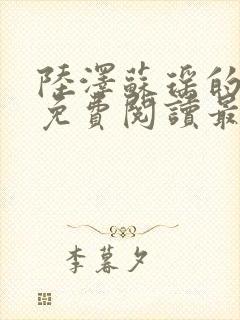 陸澤蘇瑶的
免費閱讀最
李暮夕